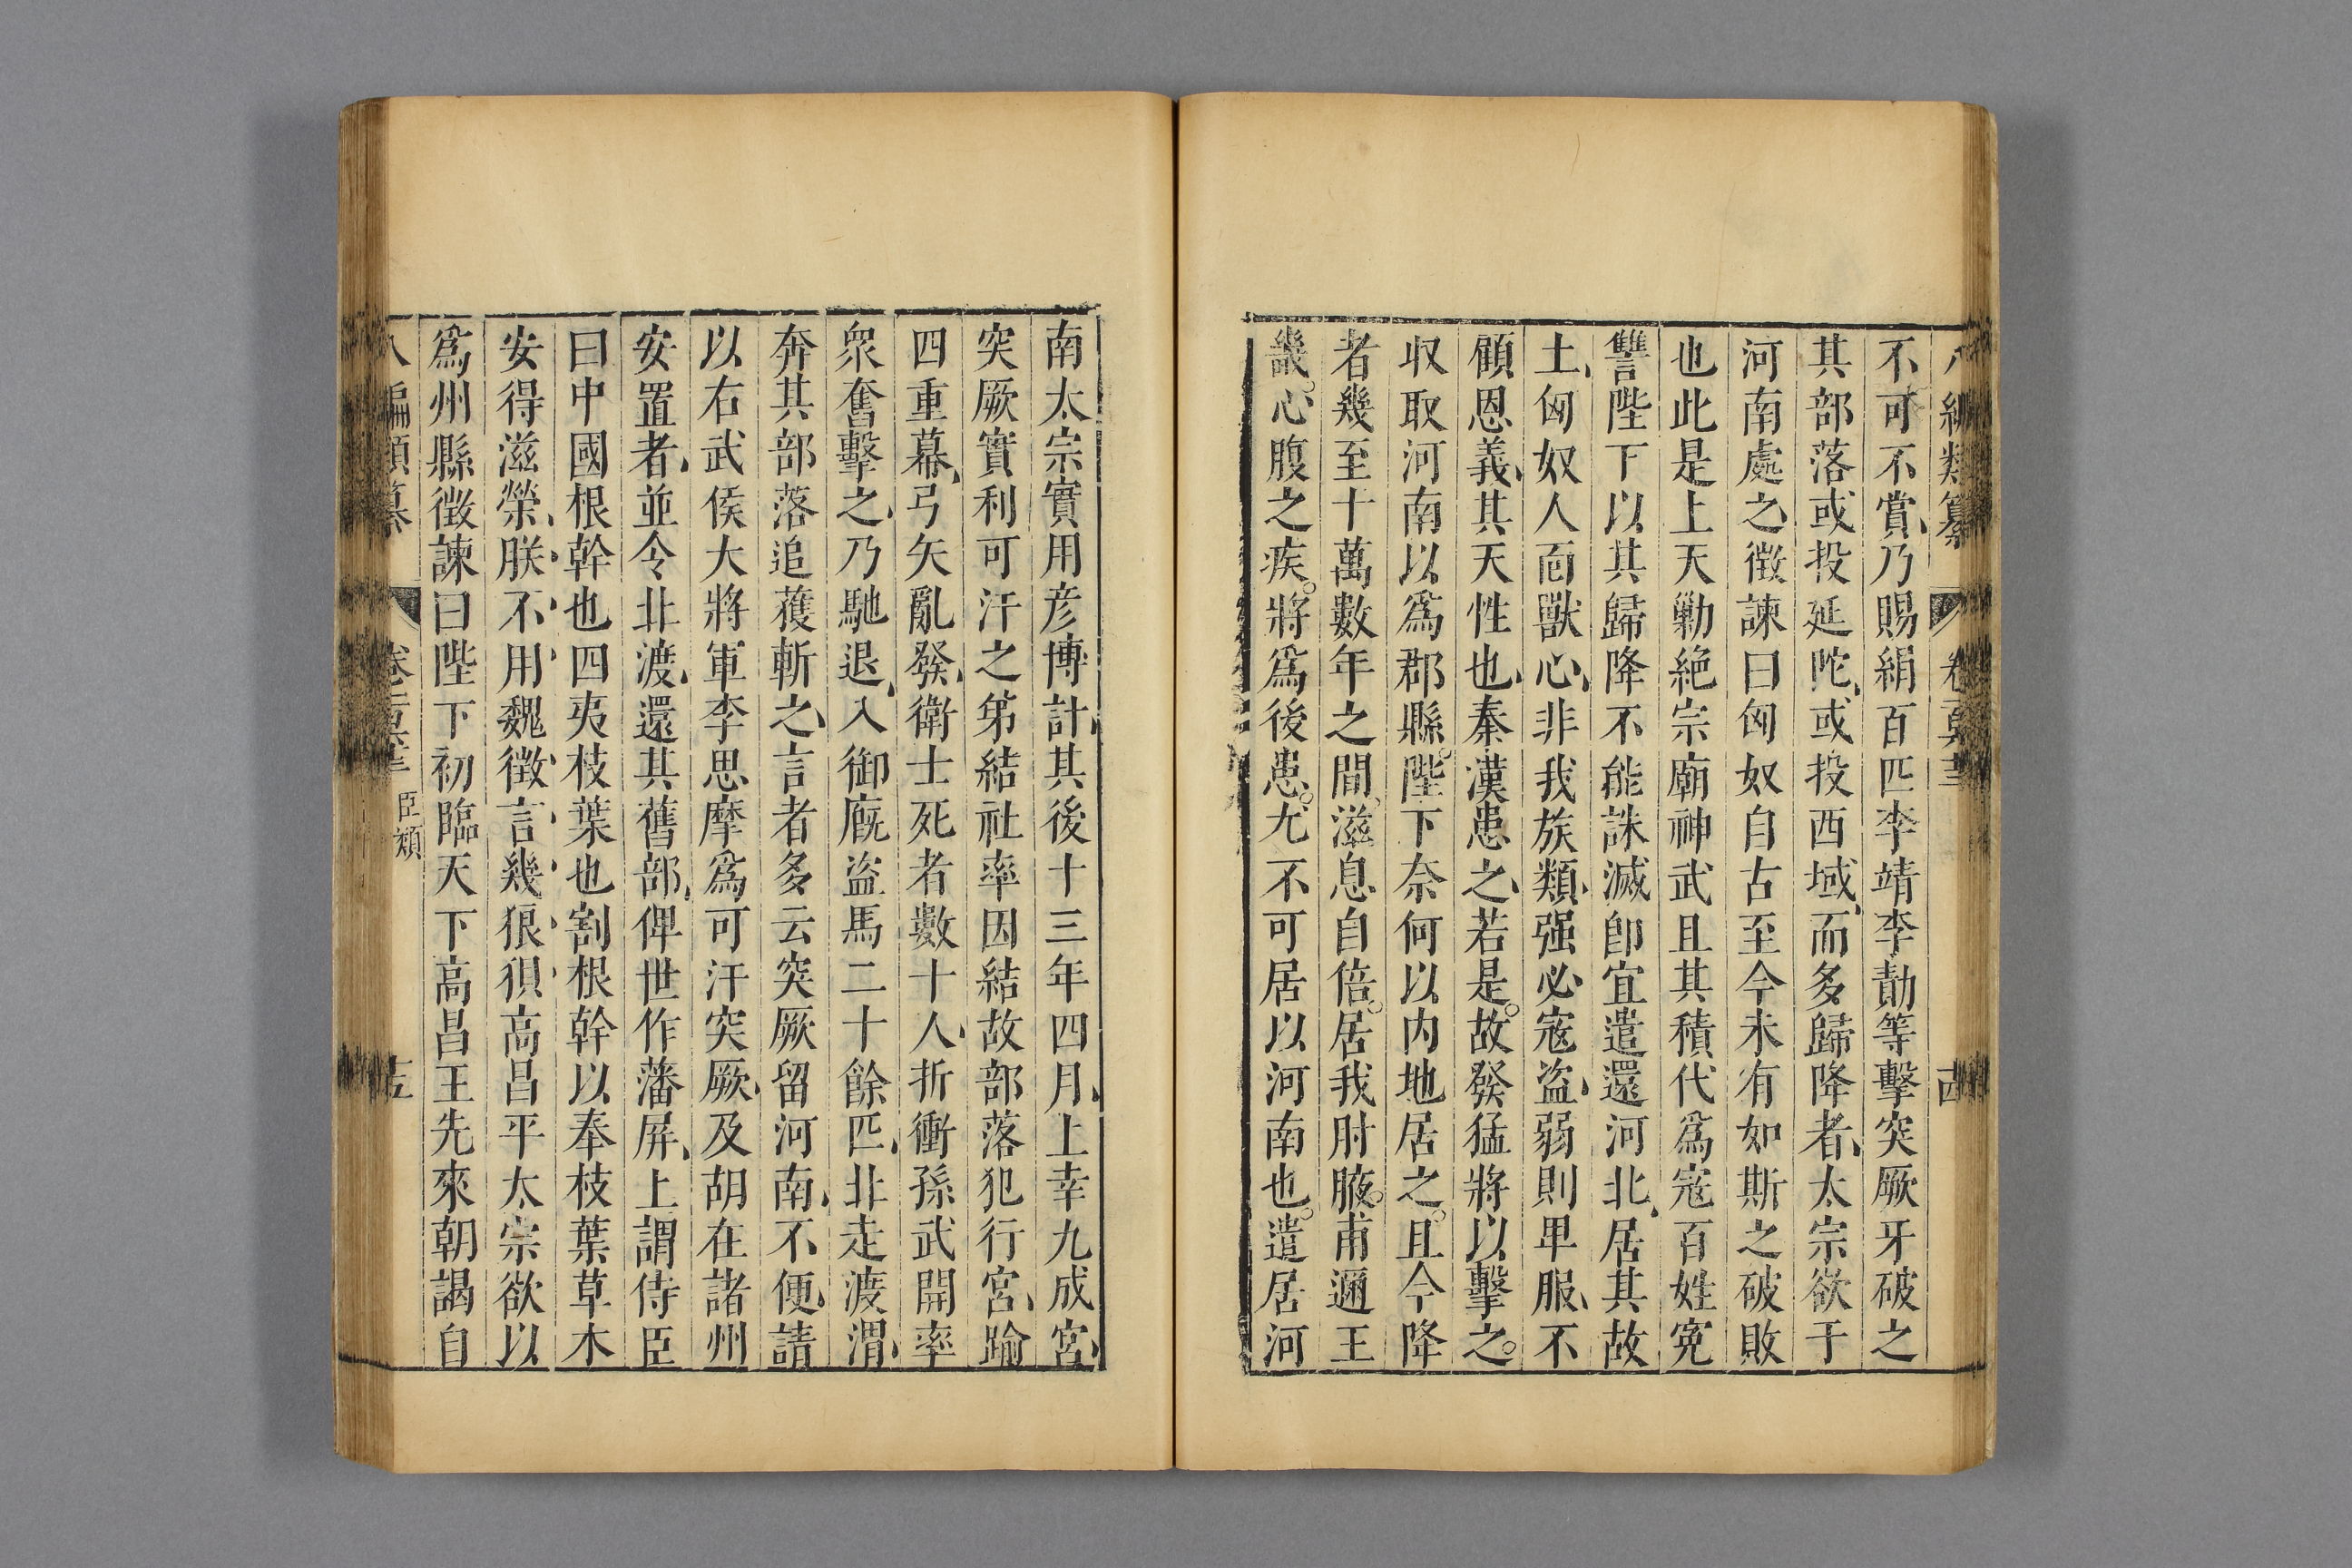 編類纂
不可不賞乃賜絹百匹李靖李勣等擊突厥牙破之
其部落或投延陀或投西域而多歸降者太宗欲于
河南處之徵諫曰匈奴自古至今未有如斯之破敗
也此是上天勦絶宗廟神武且其積代爲寇百姓冤
讐陛下以其歸降不能誅滅卽宜遣還河北居其故
土匈奴人面獸心非我族類强必寇盜弱則卑服不
顧恩義其天性也秦漢患之若是故發猛將以擊之
収取河南以爲郡縣陛下奈何以内地居之且今降
者幾至十萬數年之間滋息自倍居我肘腋甫邇王
畿心腹之疾將爲後患尤不可居以河南也遣居河
南太宗實用彦博計其後十三年四月上幸九成宮
突厥實利可汗之弟結社率因結故部落犯行宮踰
四重幕弓矢亂發衛士死者數十人折衝孫武開率
衆奮擊之乃馳退入御廐盜馬二十餘匹北走渡渭
奔其部落追獲斬之言者多云突厥留河南不便請
以右武侯大將軍李思摩爲可汗突厥及胡在諸州
安置者並令北渡還其舊部俾世作藩屏上謂侍臣
曰中國根幹也四夷枝葉也割根幹以奉枝葉草木
安得滋榮朕不用魏徵言幾狼狽高昌平太宗欲以
爲州縣徵諫曰陛下初臨天下高昌王先來朝謁自
臣類